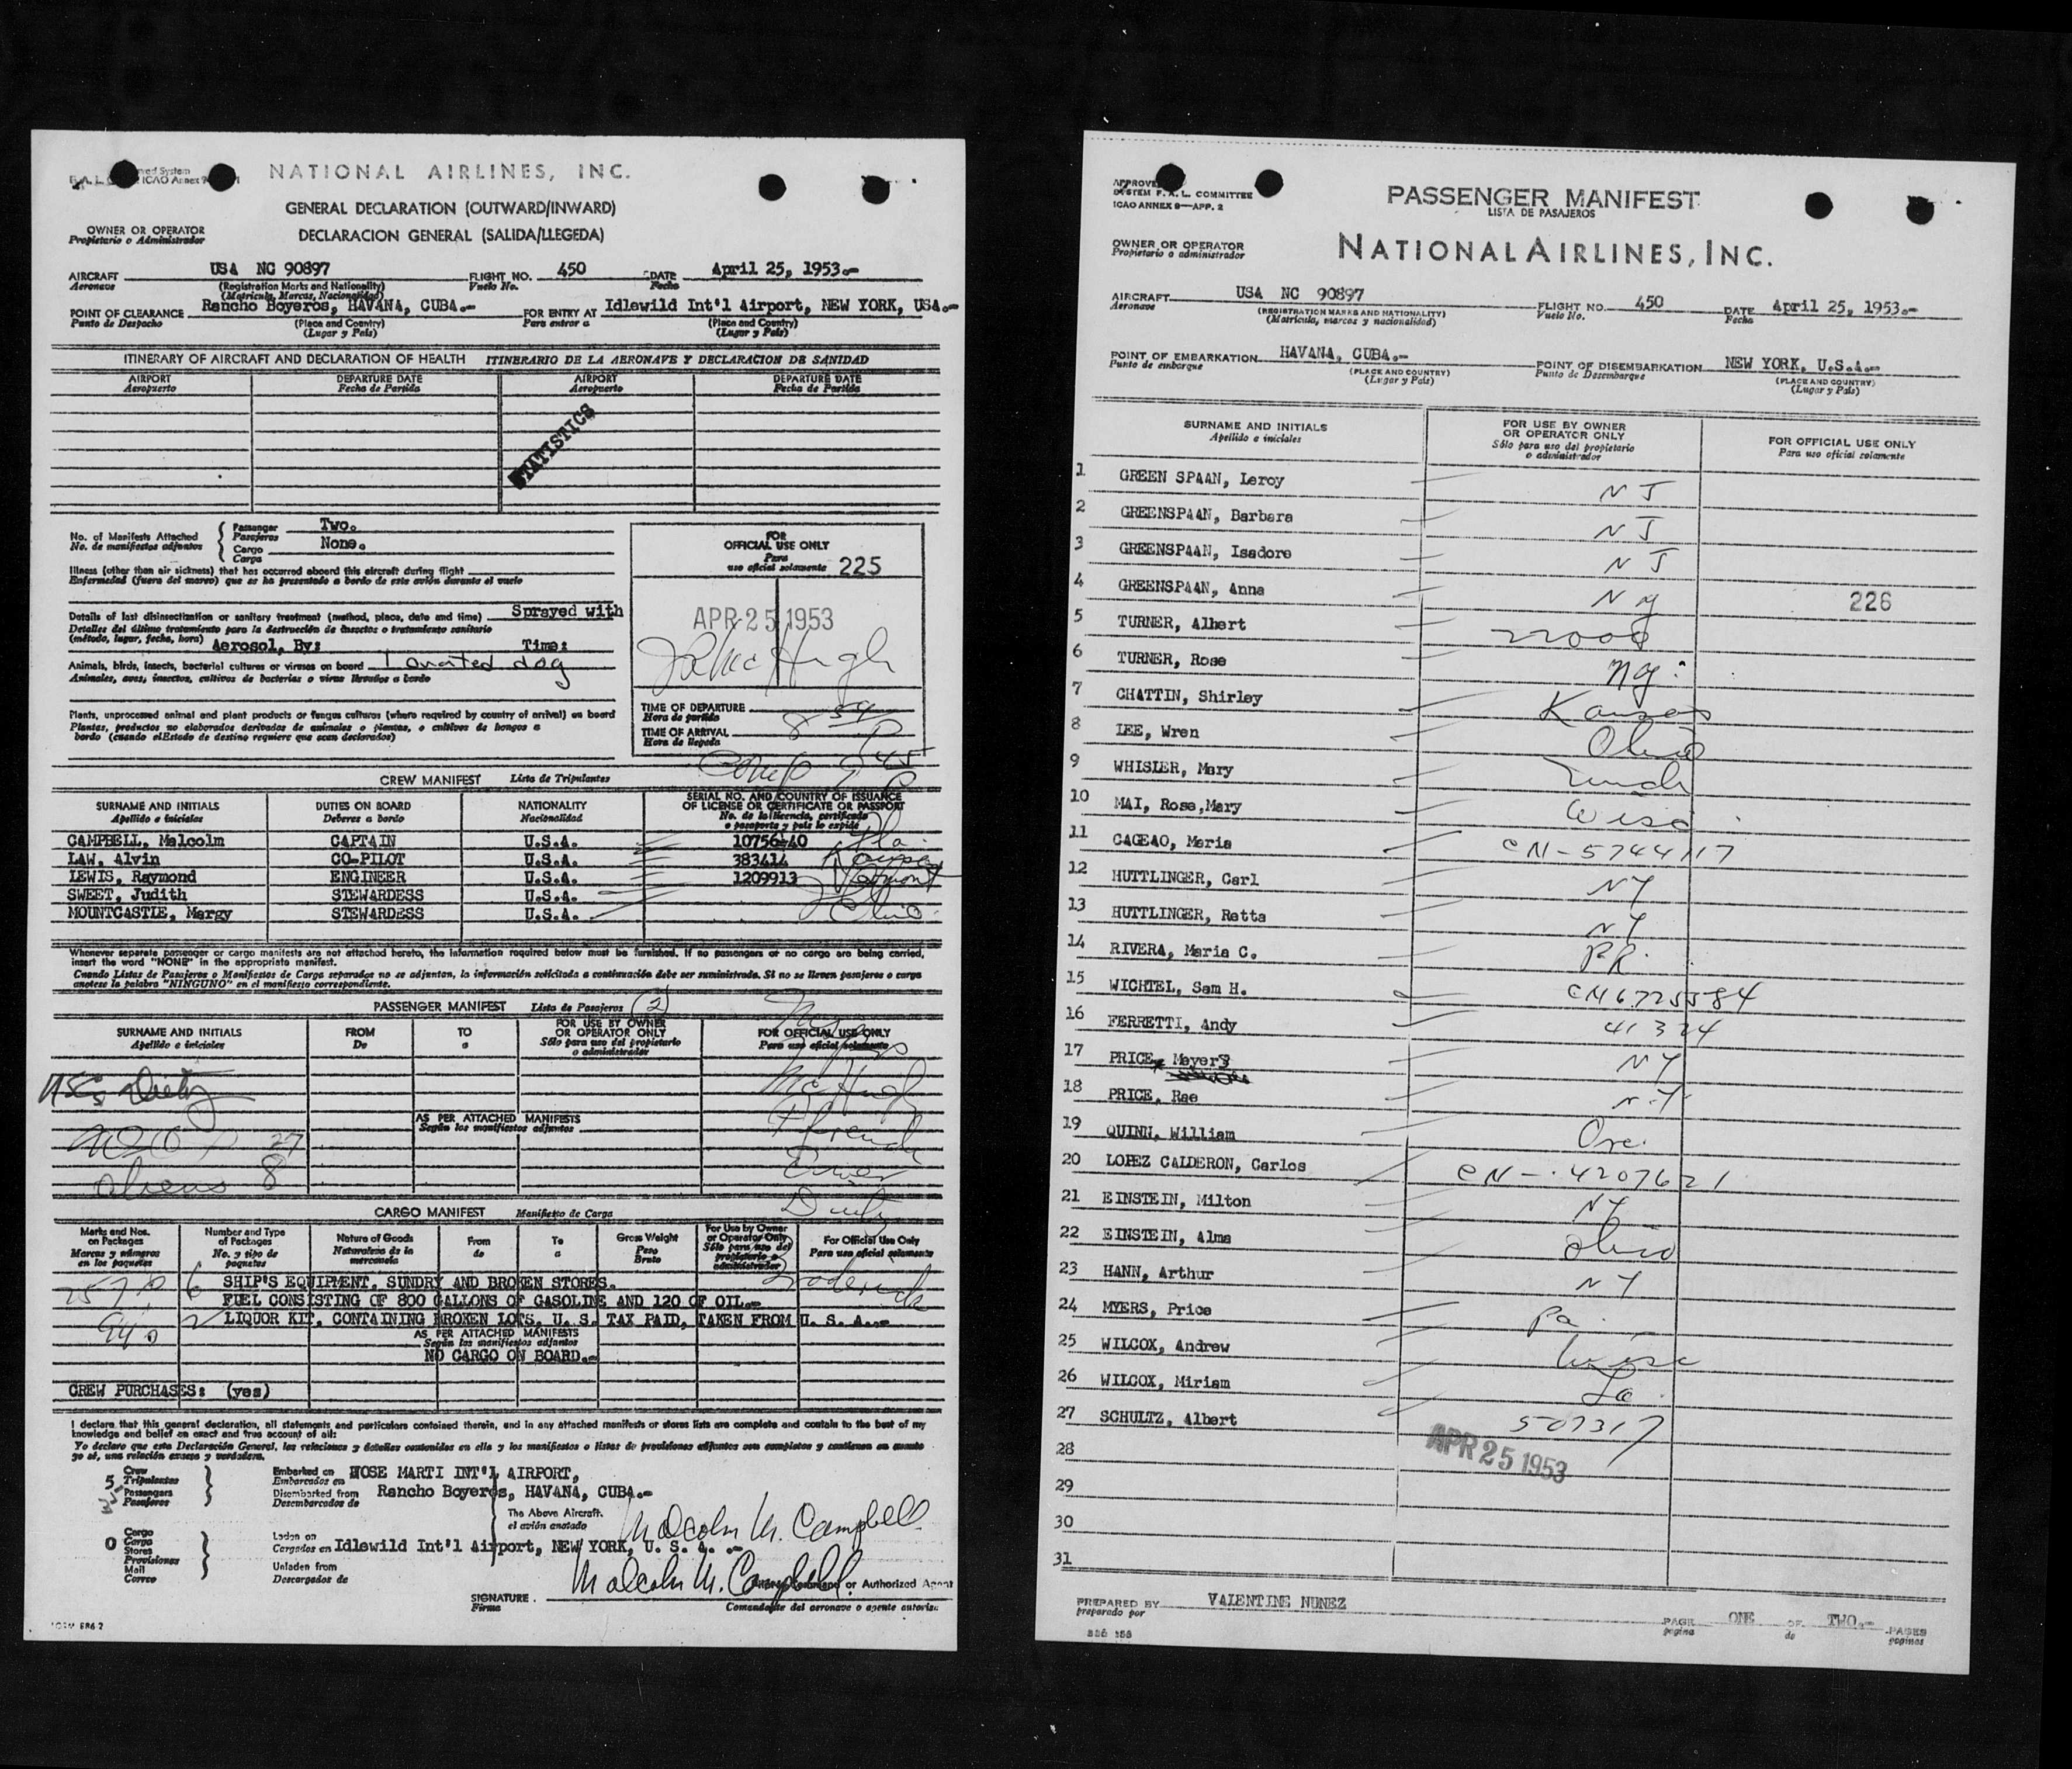 NATIONAL AIRLINES, INC.
GENERAL DECLARATION (OUTWARD/INWARD)
OWNER OR OPERATOR
Propietario o Administrador
DECLARACION GENERAL (SALIDA/LLEGEDA)
AIRCRAFT USA NC 90897 FLIGHT NO. 450 DATE April 25, 1953.-
Aeronave (Registration Marks and Nationality) Vuelo No. Fecha
(Matricula, Marcas, Nacionalidad)
POINT OF CLEARANCE Rancho Boyeros, HAVANA, CUBA.- FOR ENTRY AT Idlewild Int'l Airport, NEW YORK, USA.-
Punto de Despacho (Place and Country) Para entrar a (Place and Country)
(Lugar y Pais) (Lugar y Pais)
ITINERARY OF AIRCRAFT AND DECLARATION OF HEALTH ITINERARIO DE LA AERONAVE Y DECLARACION DE SANIDAD
AIRPORT DEPARTURE DATE AIRPORT DEPARTURE DATE
Aeropuerto Fecha de Partida Aeropuerto Fecha de Partida
STATISTICS
No. of Manifests Attached
No. de manifiestos adjuntos
Passenger Two.
Pasajeros
Cargo None.
Carga
Illness (other than air sickness) that has occurred aboard this aircraft during flight
Enfermedad (fuera del mareo) que se ha presentado a bordo de este avión durante el vuelo
Details of last disinsectization or sanitary treatment (method, place, date and time) Sprayed with
Detalles del último tratamiento para la destrucción de insectos o tratamiento sanitario
(método, lugar, fecha, hora) Aerosol, By: Time:
Animals, birds, insects, bacterial cultures or viruses on board 1 crated dog
Animales, aves, insectos, cultivos de bacterias o virus llevados a bordo
Plants, unprocessed animal and plant products or fungus cultures (where required by country of arrival) on board
Plantas, productos no elaborados derivados de animales o plantas, o cultivos de hongos a
bordo (cuando el Estado de destino requiere que sean declarados)
FOR
OFFICIAL USE ONLY
Para
uso oficial solamente 225
APR 25 1953
TIME OF DEPARTURE
Hora de partida
TIME OF ARRIVAL
Hora de llegada
CREW MANIFEST Lista de Tripulantes
SURNAME AND INITIALS DUTIES ON BOARD NATIONALITY SERIAL NO. AND COUNTRY OF ISSUANCE
OF LICENSE OR CERTIFICATE OR PASSPORT
Apellido e iniciales Deberes a bordo Nacionalidad No. de la licencia, certificado
o pasaporte y pais lo expide
CAMPBELL, Malcolm CAPTAIN U.S.A. 10756-40 Fla.
LAW, Alvin CO-PILOT U.S.A. 383414
LEWIS, Raymond ENGINEER U.S.A. 1209913 Vermont
SWEET, Judith STEWARDESS U.S.A.
MOUNTCASTLE, Margy STEWARDESS U.S.A. Ohio
Whenever separate passenger or cargo manifests are not attached hereto, the information required below must be furnished. If no passengers or no cargo are being carried,
insert the word "NONE" in the appropriate manifest.
Cuando Listas de Pasajeros o Manifiestos de Carga separados no se adjuntan, la información solicitada a continuación debe ser suministrada. Si no se lleven pasajeros o carga
anotese la palabra "NINGUNO" en el manifiesto correspondiente.
PASSENGER MANIFEST Lista de Pasajeros (2)
SURNAME AND INITIALS FROM TO FOR USE BY OWNER
OR OPERATOR ONLY FOR OFFICIAL USE ONLY
Apellido e iniciales De a Sólo para uso del propietario
o administrador Para uso oficial solamente
McHugh
AS PER ATTACHED MANIFESTS
Según los manifiestos adjuntos
27
aliens 8
CARGO MANIFEST Manifiesto de Carga
Marks and Nos.
on Packages
Marcas y números
en los paquetes
Number and Type
of Packages
No. y tipo de
paquetes
Nature of Goods
Naturaleza de la
mercancía
From
de
To
a
Gross Weight
Peso
Bruto
For Use by Owner
or Operator Only
Sólo para uso del
propietario o
administrador
For Official Use Only
Para uso oficial solamente
6 SHIP'S EQUIPMENT, SUNDRY AND BROKEN STORES.
FUEL CONSISTING OF 800 GALLONS OF GASOLINE AND 120 OF OIL.-
2 LIQUOR KIT, CONTAINING BROKEN LOTS, U. S. TAX PAID, TAKEN FROM U. S. A..-
AS PER ATTACHED MANIFESTS
Según los manifiestos adjuntos
NO CARGO ON BOARD.-
CREW PURCHASES: (yes)
I declare that this general declaration, all statements and particulars contained therein, and in any attached manifests or stores lists are complete and contain to the best of my
knowledge and belief an exact and true account of all:
Yo declaro que esta Declaración General, las relaciones y detalles contenidos en ella y los manifiestos o listas de provisiones adjuntos son completos y contienen en cuanto
yo sé, una relación exacta y verdadera.
5 Crew
Tripulantes
35 Passengers
Pasajeros
Embarked on JOSE MARTI INT'L AIRPORT,
Embarcados en
Disembarked from Rancho Boyeros, HAVANA, CUBA.-
Desembarcados de
The Above Aircraft.
el avión anotado
Malcolm M. Campbell
0 Cargo
Carga
Stores
Provisiones
Mail
Correo
Laden on
Cargados en Idlewild Int'l Airport, NEW YORK, U. S. A. .-
Unladen from
Descargados de
SIGNATURE Malcolm M. Campbell or Authorized Agent
Firma Comandante del aeronave o agente autoriz
APPROVED
SYSTEM F.A.L. COMMITTEE
ICAO ANNEX 9—APP. 2
PASSENGER MANIFEST
LISTA DE PASAJEROS
OWNER OR OPERATOR
Propietario o administrador
NATIONAL AIRLINES, INC.
AIRCRAFT USA NC 90897 FLIGHT NO. 450 DATE April 25, 1953.-
Aeronave (REGISTRATION MARKS AND NATIONALITY) Vuelo No. Fecha
(Matricula, marcas y nacionalidad)
POINT OF EMBARKATION HAVANA, CUBA.- POINT OF DISEMBARKATION NEW YORK, U.S.A.-
Punto de embarque (PLACE AND COUNTRY) Punto de Desembarque (PLACE AND COUNTRY)
(Lugar y País) (Lugar y País)
SURNAME AND INITIALS
Apellido e iniciales
FOR USE BY OWNER
OR OPERATOR ONLY
Sólo para uso del propietario
o administrador
FOR OFFICIAL USE ONLY
Para uso oficial solamente
1 GREEN SPAAN, Leroy NJ
2 GREENSPAAN, Barbara NJ
3 GREENSPAAN, Isadore NJ
4 GREENSPAAN, Anna NY 226
5 TURNER, Albert
6 TURNER, Rose NY.
7 CHATTIN, Shirley Kansas
8 LEE, Wren Ohio
9 WHISLER, Mary
10 MAI, Rose,Mary Wisc
11 CAGEAO, Maria CN-5744117
12 HUTTLINGER, Carl NY
13 HUTTLINGER, Retta NY
14 RIVERA, Maria C. P.R.
15 WICHTEL, Sam H. CN6725584
16 FERRETTI, Andy 41324
17 PRICE, Meyer NY
18 PRICE, Rae N.Y.
19 QUINN, William Ore.
20 LOPEZ CALDERON, Carlos CN-4207621
21 EINSTEIN, Milton NY
22 EINSTEIN, Alma Ohio
23 HANN, Arthur NY
24 MYERS, Price Pa.
25 WILCOX, Andrew Wisc
26 WILCOX, Miriam La.
27 SCHULTZ, Albert 507317
28
APR 25 1953
29
30
31
PREPARED BY VALENTINE NUNEZ
preparado por
PAGE ONE OF TWO.- PAGES
pagina de paginas